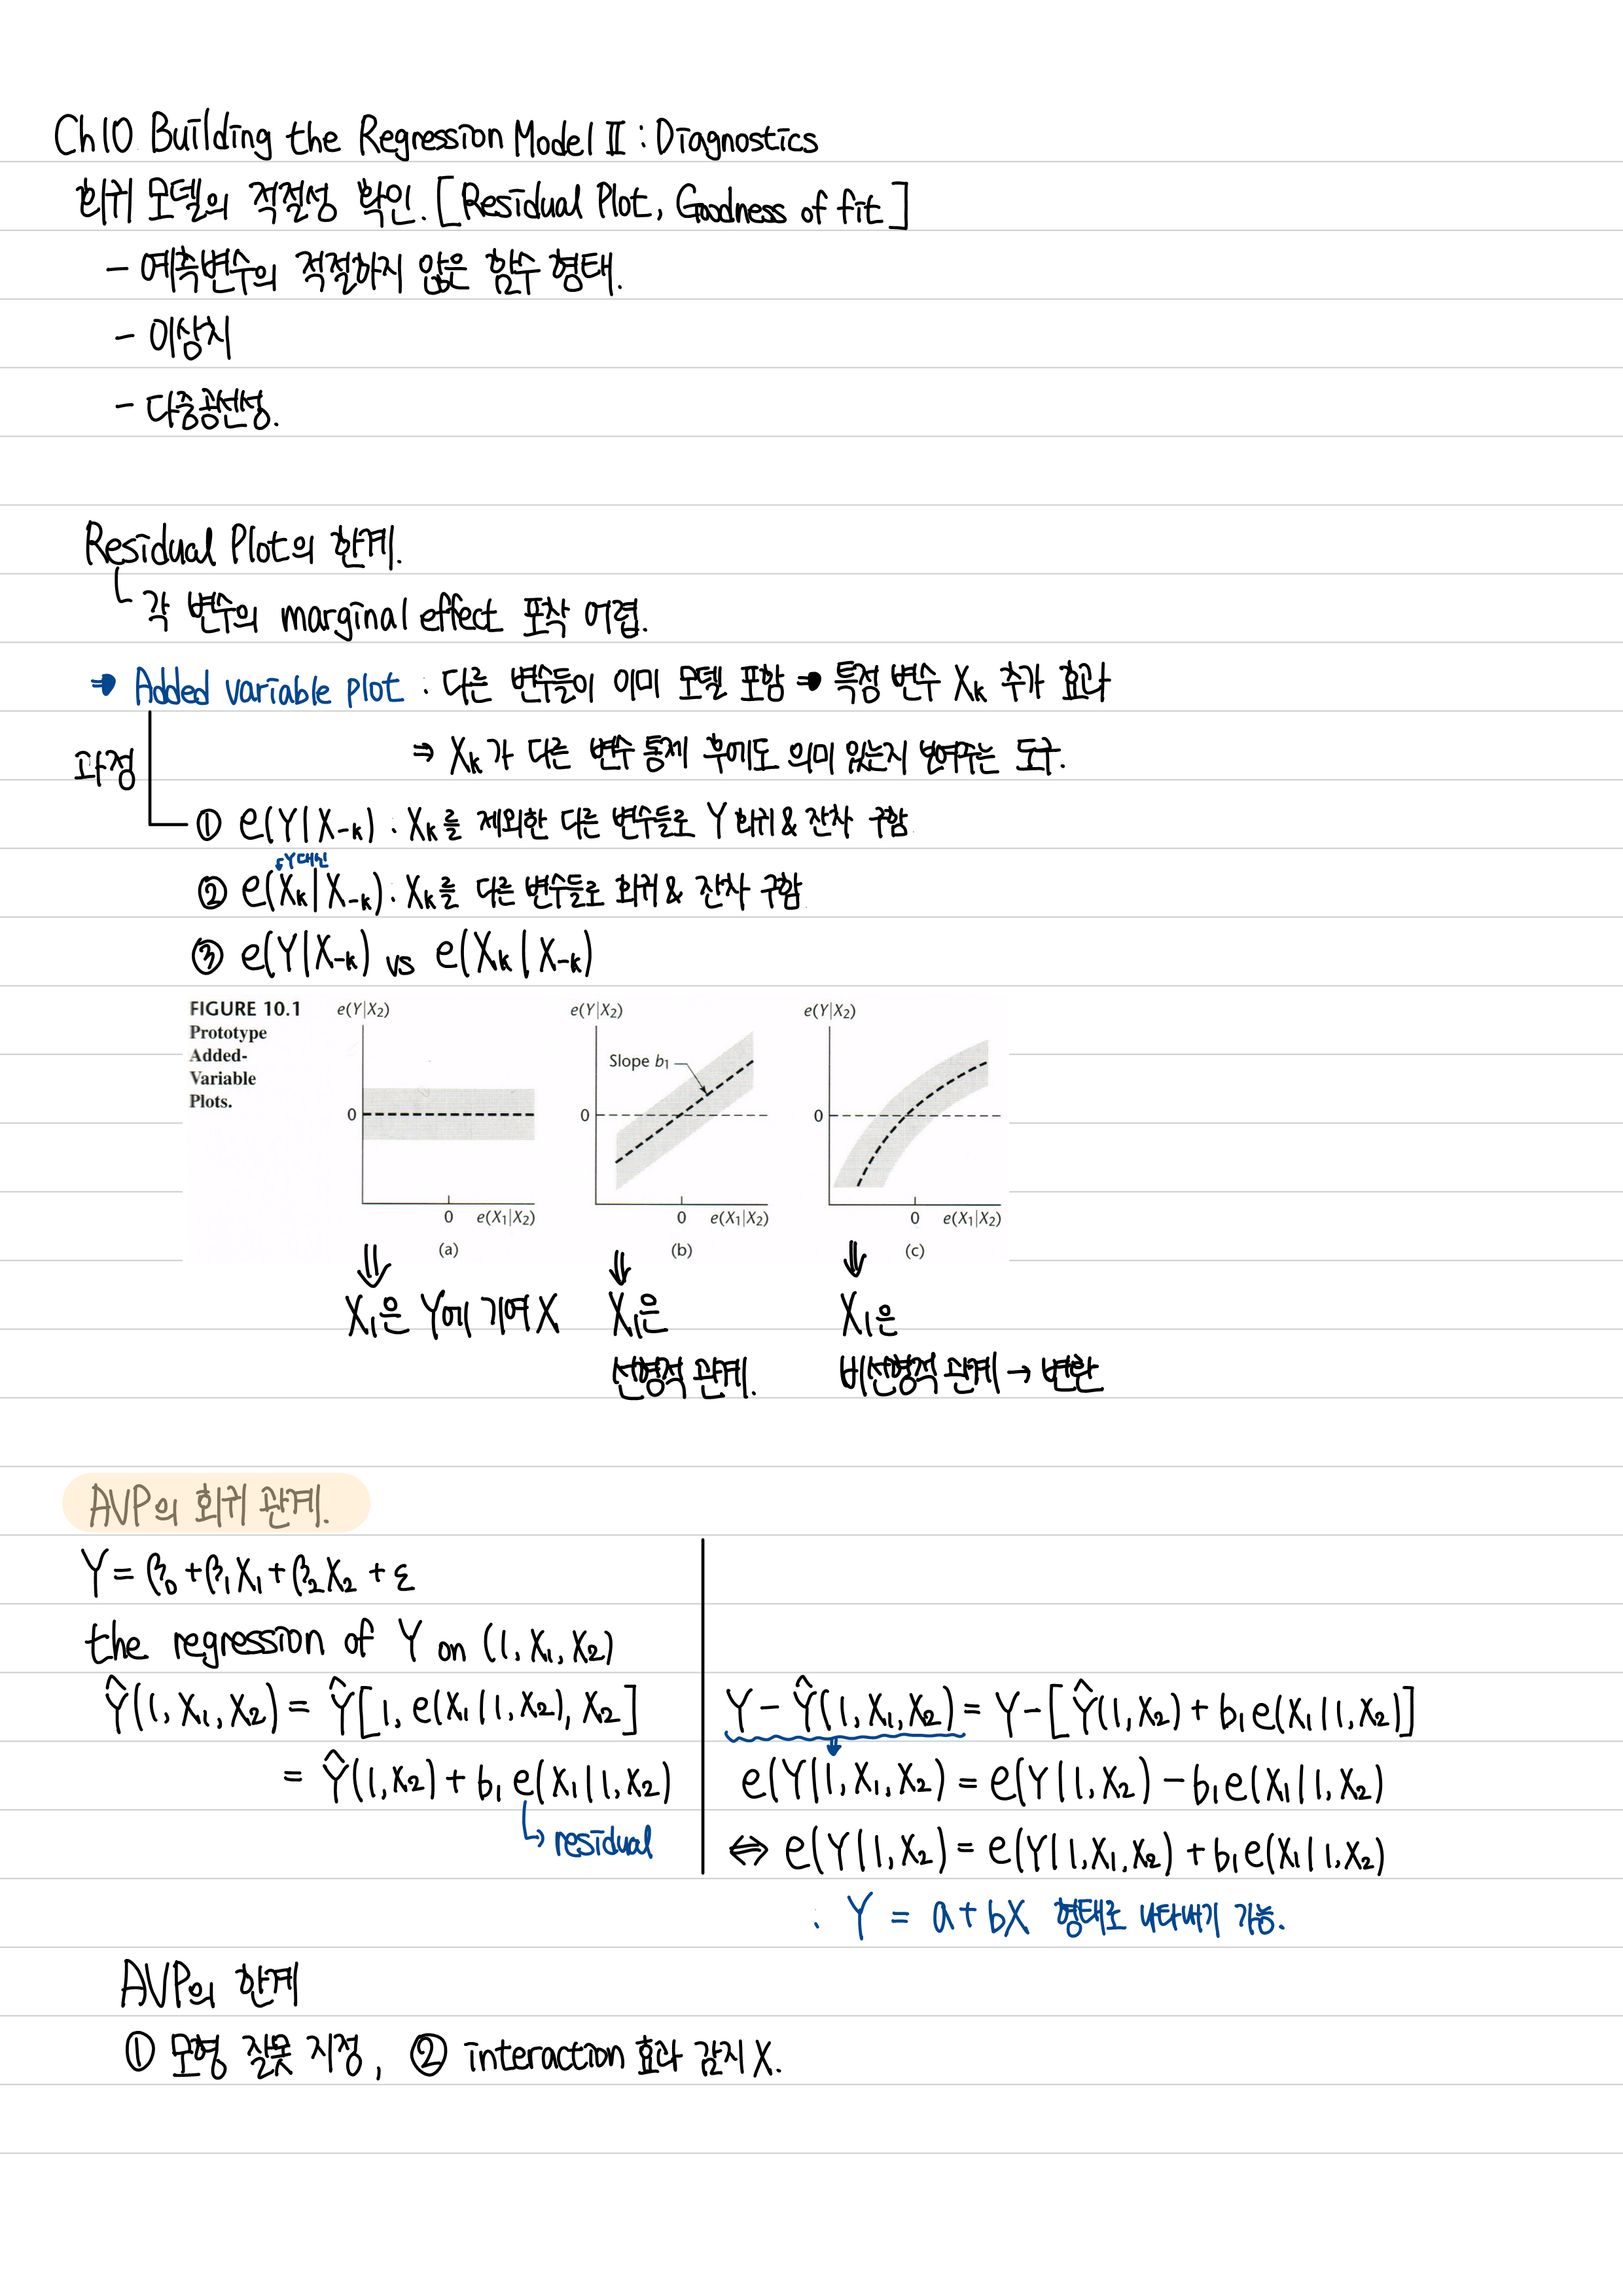 Ch10 Building the Regression Model Ⅱ : Diagnostics
회귀 모델의 적절성 확인. [Residual Plot, Goodness of fit]
- 예측변수의 적절하지 않은 함수 형태.
- 이상치
- 다중공선성.
Residual Plot의 한계.
각 변수의 marginal effect 포착 어렵.
⇒ Added variable plot : 다른 변수들이 이미 모델 포함 ⇒ 특정 변수 Xk 추가 효과
과정
⇒ Xk가 다른 변수 통제 후에도 의미 있는지 보여주는 도구.
① e(Y|X-k) : Xk를 제외한 다른 변수들로 Y 회귀 & 잔차 구함
Y 대신
② e(Xk|X-k) : Xk를 다른 변수들로 회귀 & 잔차 구함
③ e(Y|X-k) vs e(Xk|X-k)
FIGURE 10.1
Prototype
Added-
Variable
Plots.
e(Y|X2)
0
0 e(X1|X2)
(a)
e(Y|X2)
Slope b1
0
0 e(X1|X2)
(b)
e(Y|X2)
0
0 e(X1|X2)
(c)
⇓ ⇓ ⇓
X1은 Y에 기여 X
X1은
선형적 관계.
X1은
비선형적 관계 → 변환
AVP의 회귀 관계.
Y = β0 + β1X1 + β2X2 + ε
the regression of Y on (1, X1, X2)
Ŷ(1, X1, X2) = Ŷ[1, e(X1|1, X2), X2]
= Ŷ(1, X2) + b1 e(X1|1, X2)
↳ residual
Y - Ŷ(1, X1, X2) = Y - [Ŷ(1, X2) + b1 e(X1|1, X2)]
e(Y|1, X1, X2) = e(Y|1, X2) - b1 e(X1|1, X2)
⇔ e(Y|1, X2) = e(Y|1, X1, X2) + b1 e(X1|1, X2)
: Y = a + bX 형태로 나타내기 가능.
AVP의 한계
① 모형 잘못 지정, ② interaction 효과 감지 X.